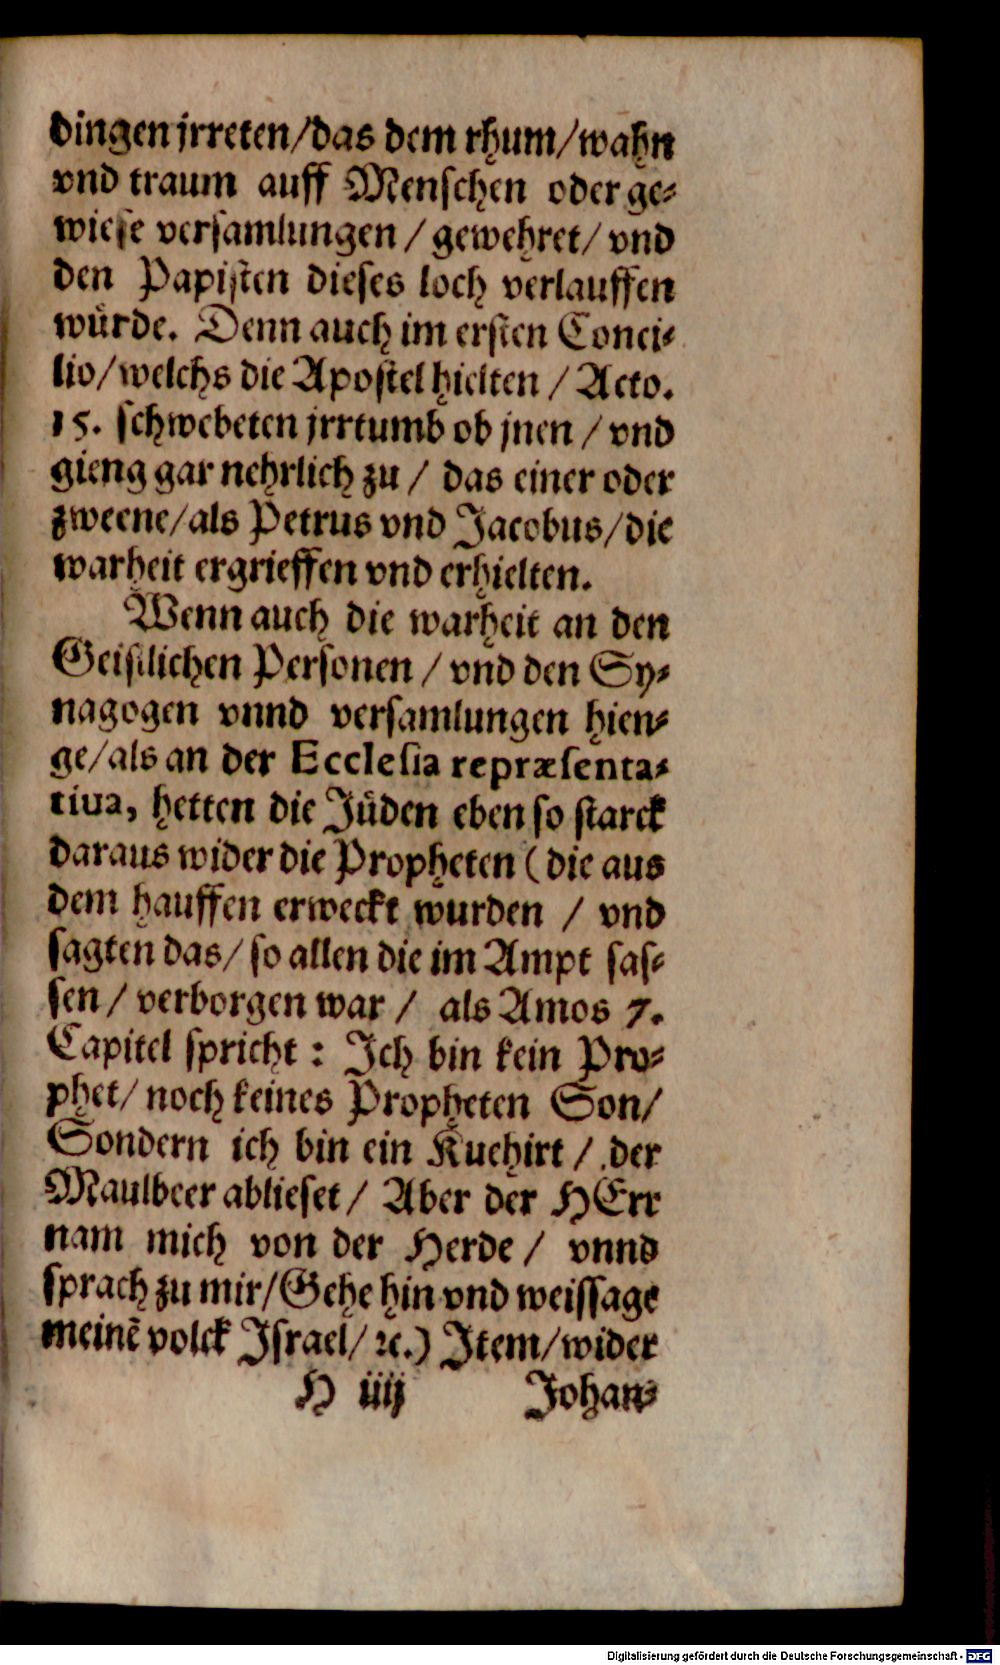 dingen jrreten/das dem rhum/wahn
vnd traum auff Menschen oder ge-
wiese versamlungen / gewehret/ vnd
den Papisten dieses loch verlauffen
würde. Denn auch im ersten Conci-
lio/welchs die Apostel hielten / Acto.
15. schwebeten jrrtumb ob jnen / vnd
gieng gar nehrlich zu / das einer oder
zweene/als Petrus vnd Jacobus/die
warheit ergrieffen vnd erhielten.
Wenn auch die warheit an den
Geistlichen Personen / vnd den Sy-
nagogen vnnd versamlungen hien-
ge/als an der Ecclesia repræsenta-
tiua, hetten die Jüden eben so starck
daraus wider die Propheten (die aus
dem hauffen erweckt wurden / vnd
sagten das/ so allen die im Ampt sas-
sen / verborgen war / als Amos 7.
Capitel spricht : Ich bin kein Pro-
phet/ noch keines Propheten Son/
Sondern ich bin ein Kuehirt / der
Maulbeer ablieset / Aber der HErr
nam mich von der Herde / vnnd
sprach zu mir/Gehe hin vnd weissage
meinē volck Israel/ ꝛc.) Item/wider
H iiij Johan-
Digitalisierung gefördert durch die Deutsche Forschungsgemeinschaft - DFG